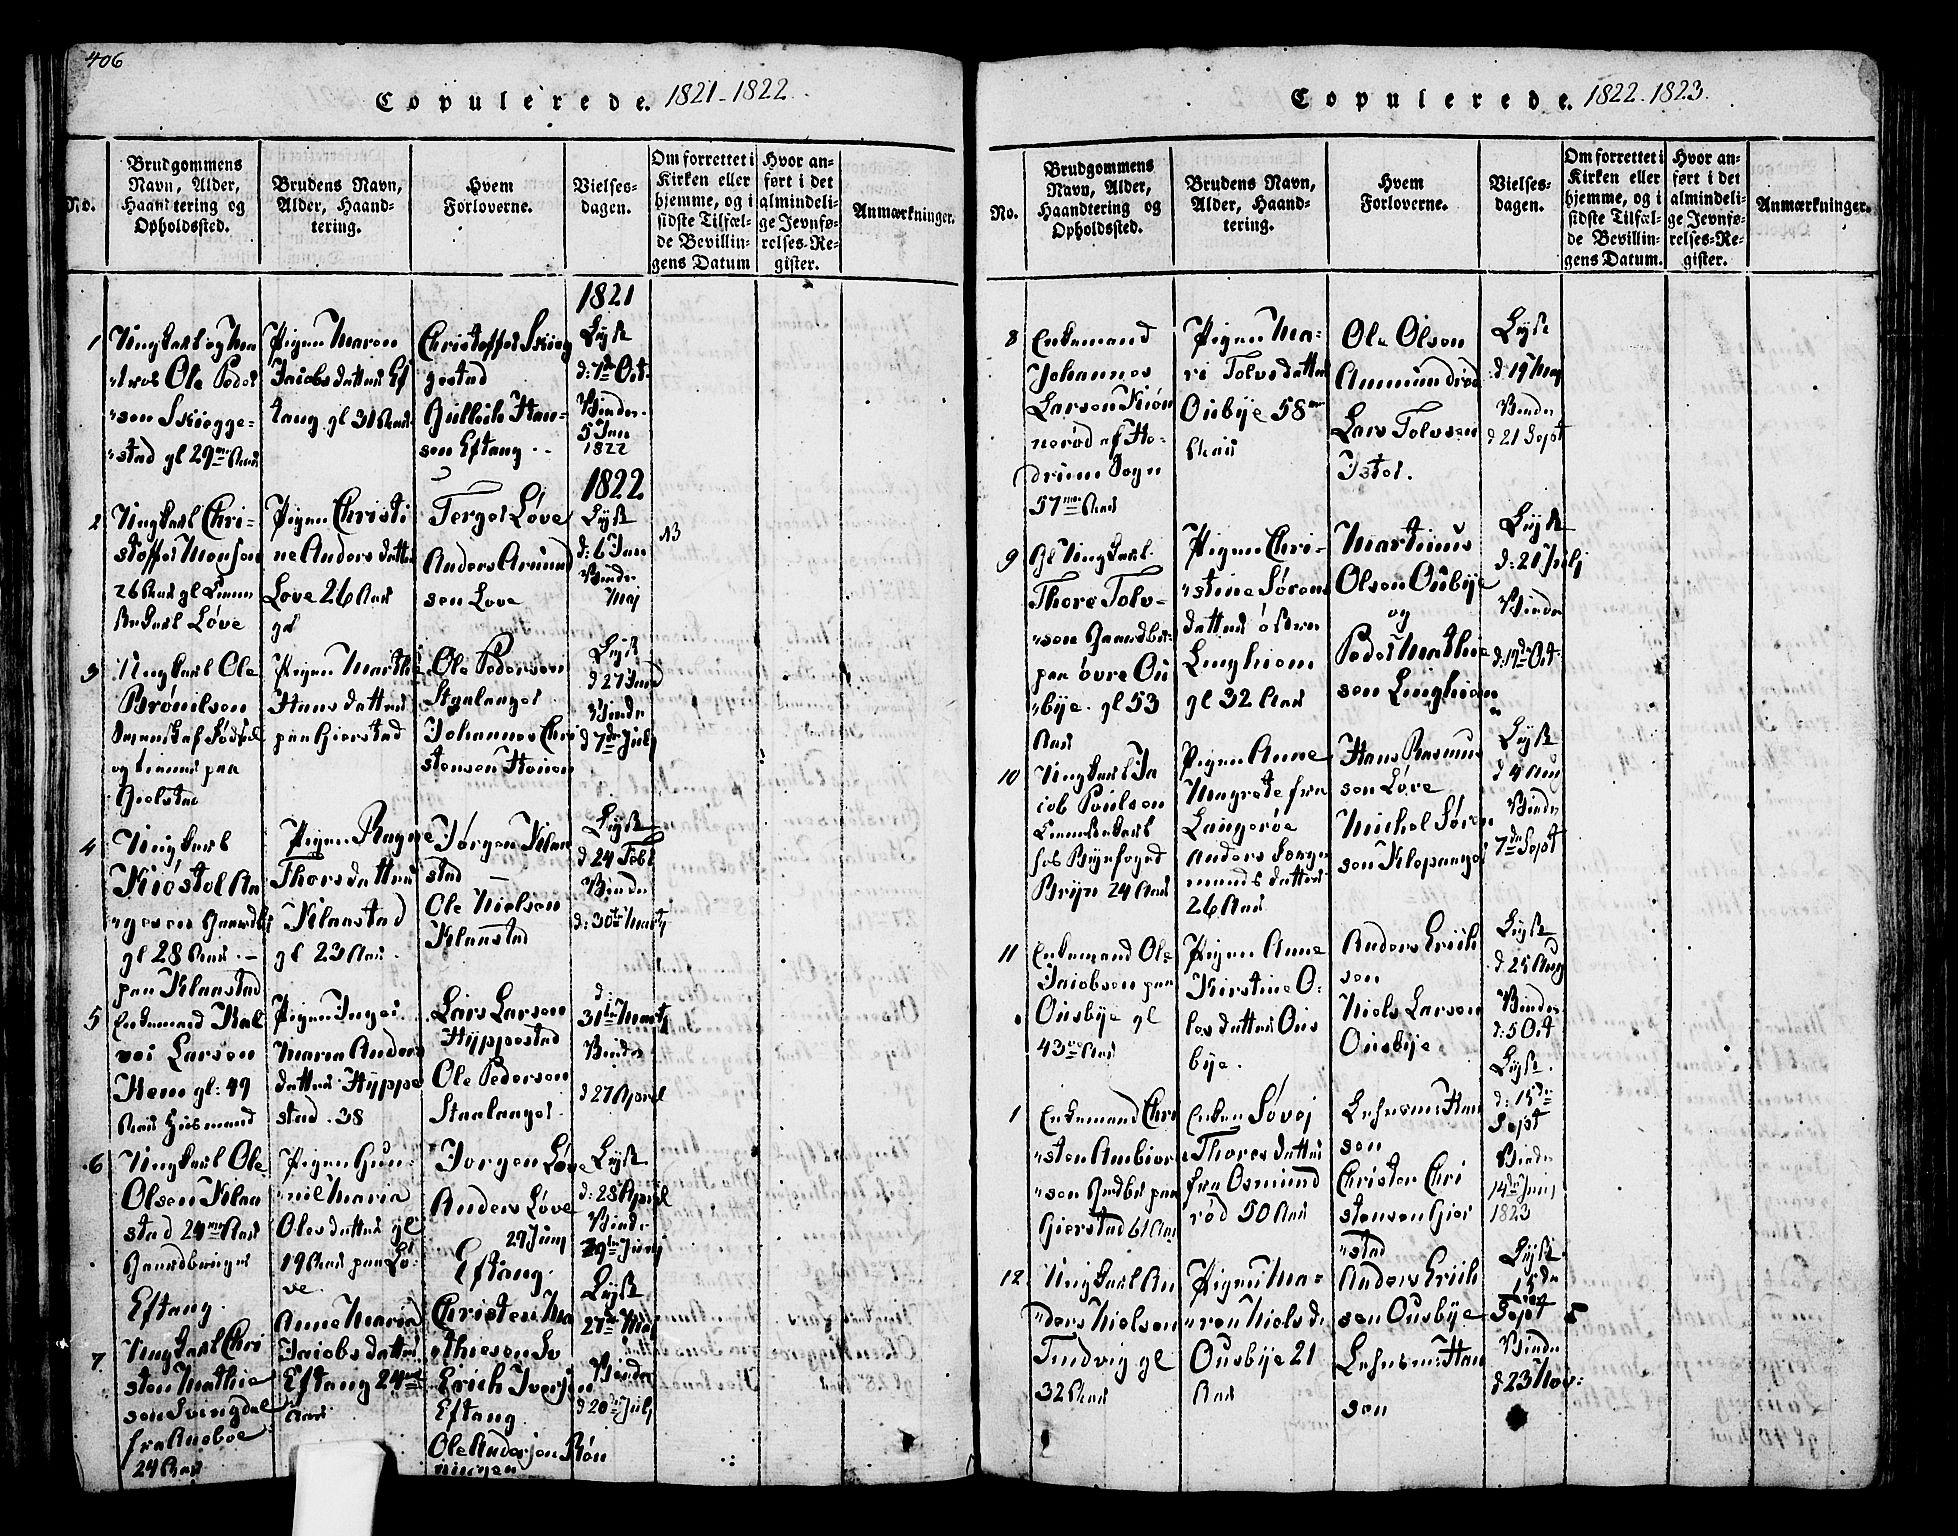 406
Copulerede. 1821-1822
No.
Brudgommens
Navn, Alder,
Haandtering og
Opholdssted.
Brudens Navn,
Alder, Haand-
tering.
Hvem
Forloverne.
Vielses-
dagen.
Om forrettet i
Kirken eller
hjemme, og i
sidste Tilfæl-
de Bevillin-
gens Datum
Hvor an-
ført i det
almindeli-
ge Jevnfø-
relses-Re-
gister.
Anmærkninger.
1
Ungkarl og Ma
tros Ole Peder
sen Skiegge-
stad gl 29 Aar
Pigen Maren
Jacobsdatter Ef
tang gl 31 Aar
Christoffer Skieg
gestad
Gulleik Han-
sen Eftang
1821
Lyst
d: 7de Oct.
Viede
5 Jan
1822
2
Ungkarl Chri-
stoffer Monsen
26 Aar gl
Løve
Pigen Christi
ne Andersdatter
Løve 26 Aar
gl
Terger Løve
Anders Amund
sen Løve
1822
Lyst
d: 6 Jan
Viede
Maj
13
3
Ungkarl Ole
Brønilsen
Svensk af Fødsel
og tienner paa
Gielstad
Pigen Marthe
Hansdatter
paa Gierstad
Ole Pedersen
Staalanger
Johannes Chri
stensen Houen
Lyst
d 27 Janu
Viede
d 7de July
4
Ungkarl
Kiøstol Aa
gesen Gaardbr
gl 28 Aar
paa Klaastad
Pigen Ragne
Thorsdatter
Klaastad
gl 23 Aar
Jørgen Klaa
stad
Ole Nielsen
Klaastad
Lyst
d 24 Feb
Viede
d: 30te Marty
5
Enkemand Hal
vor Larsen
Hem gl: 49
Aar Huusmand
Pigen Inger
Maria Anders
datter Hyppe
stad 38
Lars Larsen
Hyppestad
Ole Pedersen
Staalanger
d:
31te Marty
Viede
d 27 Apriel
6
Ungkarl Ole
Olsen Klaa
stad 24 Aar
Gaardbruger
Eftang.
Pigen Gun-
nil Maria
Olesdatter gl
19 Aar paa Lø
ve
Jørgen Løve
Anders Løve
29 Juny
Eftang.
Lyst
d: 28 Apriel
Viede
29de Juny
7
Ungkarl Chri
sten Mathie
sen Svingdal
fra Andeboe
24 Aar
Anne Maria
Jacobsdatter
Eftang 24
Aar
Christen Ma
thiesen Sv
Erich Iversen
Eftang.
Ole Andersen Røn
ningen
Lyst
27de Maj
Viede
d 20de July
Copulerede. 1822-1823.
No.
Brudgommens
Navn, Alder,
Haandtering og
Opholdssted.
Brudens Navn,
Alder, Haand-
tering.
Hvem
Forloverne.
Vielses-
dagen.
Om forrettet i
Kirken eller
hjemme, og i
sidste Tilfæl-
de Bevillin-
gens Datum.
Hvor an-
ført i det
almindeli-
ge Jevnfø-
relses-Re-
gister.
Anmærkninger.
8
Enkemand
Johannes
Larsen Kiøn
nerød af He-
drum Sogn
57 Aar
Pigen Ma-
ri Tolvsdatter
Oubye 58
Aar
Ole Olsen
Ammundrød
Lars Tolvsen
Istre.
Lyst
d 19 Maj
Viede
d 21 Sept
9
Gl Ungkarl
Thore Tolv-
sen Gaardbr
paa øvre Ou
bye. gl 53
Aar
Pigen Chri-
stine Sørens
datter østre
Linghiem
gl 32 Aar
Martinus
Olsen Oubye
og
Peder Mathie
sen Linghiem
Lyst
d: 21 July
Viede
d: 19de Oct.
10
Ungkarl Ja
cob Poulsen
hos Byefoged
Bryn 24 Aar
Pigen Anne
Magrete fra
Langerøe
Anders
mandsdatter
26 Aar
Hans Rasmus
sen Løve
Michel Søren
sen Klepanger
Lyst
d 4 Aug
Viede
7de Sept
11
Enkemand Ole
Jacobsen paa
Ousbye gl
43 Aar
Pigen Anne
Kirstine O-
lesdatter Ous
bye.
Anders Erich
sen
Niels Larsen
Ousbye
Lyst
d: 25 Aug
Viede
d: 5 Oct
1
Enkemand Chri
sten Ambiør
sen Gaardbr paa
Gierstad 61 Aar
Enken Søvej
Thoresdatter
fra Osmund
rød 50 Aar
Lehnsm: Han
sen
Christen Chri
stensen Gier
stad
Lyst.
d: 15de
Sept
Viede
14de Juny
1823
12
Ungkarl An
ders Nielsen
Tindvig gl
32 Aar
Pigen Ma-
ren Niels d.
Ousbye 21
Aar
Anders Erich
sen Ousbye
Lehnsm: Han
sen
Lyst
15de
Sept
Viede
d 23 Nov: